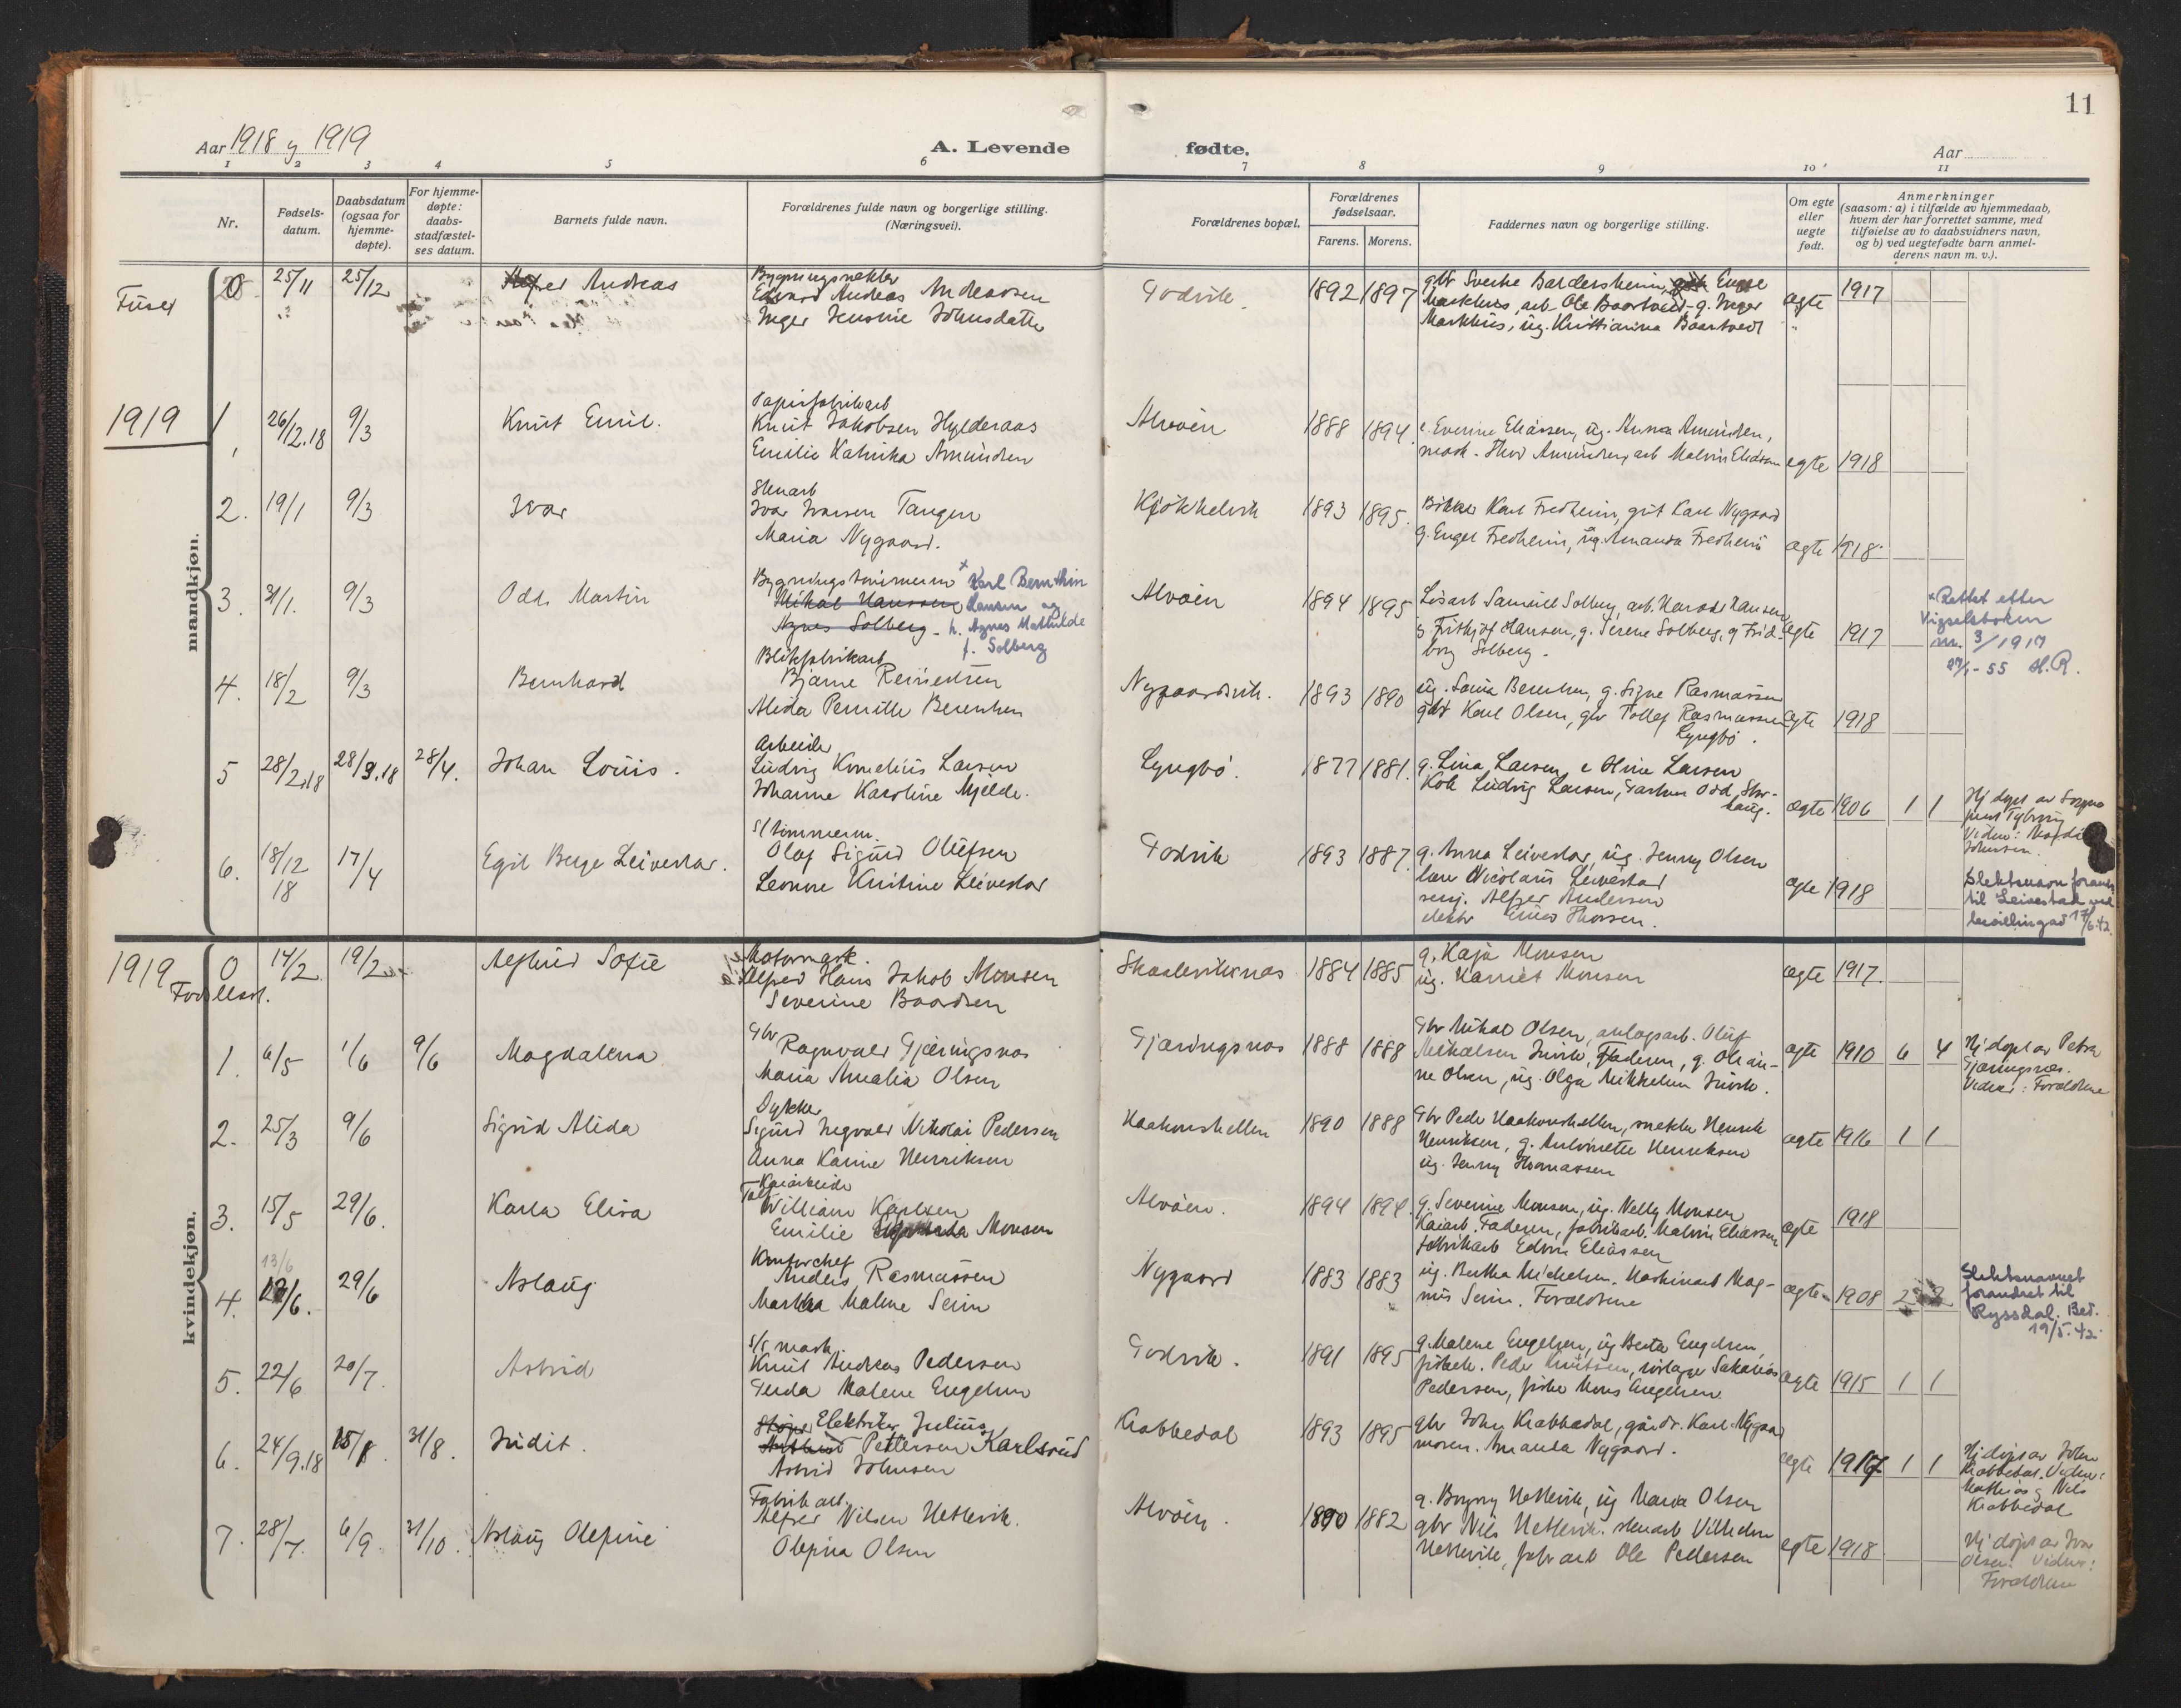 11
Aar 1918 og 1919
A. Levende
fødte.
Aar
1 2 3 4 5 6 7 8 9 10 11
Nr.
Fødsels-
datum.
Daabsdatum
(ogsaa for
hjemme-
døpte).
For hjemme-
døpte:
daabs-
stadfæstel-
ses datum.
Barnets fulde navn.
Forældrenes fulde navn og borgerlige stilling.
(Næringsvei).
Forældrenes bopæl.
Forældrenes
fødselsaar.
Farens. Morens.
Faddernes navn og borgerlige stilling.
Om egte
eller
uegte
født.
Anmerkninger
(saasom: a) i tilfælde av hjemmedaab,
hvem der har forrettet samme, med
tilføielse av to daabsvidners navn,
og b) ved uegtefødte barn anmel-
derens navn m. v.).
mandkjøn.
0 25/11 25/12 Andreas
Edvard Andreas Andreassen
Inger Jensine Johnsdatter
Godvik 1892 1897
Markhus, arb. Ole Baartvedt, g. Inger
Markhus, ug. Kristianna Baartvedt
egte 1917
1919
1, 26/2.18 9/3 Knut Emil.
Papirfabrikarb
Knut Jakobsen Hylderaas
Emilie Katinka Amundsen
Alvøen 1888 1894.
e. Everine Eliassen, ug. Anna Amundsen,
mask. Thor Amundsen, arb Malvin Eliassen
egte 1918
2. 19/1 9/3 Ivar
Stenarb
Ivar Ivarsen Tangen
Maria Nygaard.
Kjøkkelvik 1893 1895.
Karl Fredheim, gut Karl Nygaard
g. Engel Fredheim, ug. Amanda Fredheim
egte 1918.
3. 31/1. 9/3 Odd Martin
Bygningstømmerm x Karl Bernthin
Mikal Hanssen Hansen og
Agnes Solberg - h. Agnes Mathilde
f. Solberg
Alvøen 1894 1895
Løsarb Samuel Solberg, arb. Harald Hansen
g. Fridtjof Hansen, g. Serene Solberg, g Frid-
borg Solberg.
egte 1917
x Rettet etter
Vigselsboken
nr. 3/1917
-55 H.R.
4. 18/2 9/3 Bernhard
Blikfabrikarb
Bjarne Reinertsen
Alida Pernille Berentsen
Nygaardsvik. 1893 1890
ug. Sania Berentsen, g. Signe Rasmussen
gbr Karl Olsen, gbr Tollef Rasmussen
Lyngbø.
egte 1918
5 28/2.18 28/3.18 28/4. Johan Louis.
Arbeider
Ludvig Kornelius Larsen
Johanne Karoline Mjelde.
Lyngbø. 1877 1881.
g. Lina Larsen, e Oline Larsen
Kok Ludvig Larsen, Gartner Odd Stor-
haug.
egte 1906 1 1
Hj døpt av Sogne
prest Tybring
Johnsen.
6. 18/12 18 17/4 Egil Berge Leivestar.
S/tømmerm.
Olaf Sigurd Olufsen
Leonore Kristine Leivestar
Godvik 1893 1887.
g. Anna Leivestar, ug. Jenny Olsen
lærer Nicolaus Leivestad
sersj. Alfred Andersen
elektr Einar Thorsen.
egte 1918
Slektsnavn forand.
til Leivestad ved
bevilling ad 17/6.42.
kvindekjøn.
1919 0 14/2 19/2 Alfhild Sofie
Motormask.
Alfred Hans Jakob Monsen
Severine Baardsen
Skaleviksnes 1884 1885
g. Kaja Monsen
ug. Harriet Monsen
egte 1917.
1. 6/5 1/6 9/6 Magdalena
Gbr
Ragnvald Gjæringsnes
Maria Amalia Olsen
Gjæringsnes 1888 1888
Gbr Mikal Olsen, anlægsarb. Oluf
Mikkelsen Juvik, Faderen, g. Olian-
ne Olsen, ug. Olga Mikkelsen Juvik.
egte 1910 6 4
Hj døpt av Petra
Gjæringsnes.
Vidner: Forældrene
2. 25/3 9/6 Sigrid Alida
Dykker
Sigurd Ingvald Nikolai Pedersen
Anna Karine Henriksen
Haakonshellen 1890 1888
Gbr Peder Haakonshellen, snekker Henrik
Henriksen, g. Antoinette Henriksen
ug. Jenny Thomassen
egte 1916 1 1
3. 15/5 29/6. Karla Elisa
Kaiarbeider
William Karlsen
Emilie Monsen
Alvøen. 1894 1894.
g. Severine Monsen, ug. Nelly Monsen
Kaiarb. Faderen, fabrikarb. Malvin Eliassen
fabrikarb Edvin Eliassen
egte 1918
4. 13/6 29/6 Aslaug
Kontorchef
Anders Rasmussen
Martha Malene Seim
Nygaard 1883 1883
ug. Bertha Michelsen. Maskinarb Mag-
nus Seim. Forældrene
egte 1908 2 2
Slektsnavnet
forandret til
Ryssdal. Bev.
19/5.42.
5. 22/6 20/7. Astrid
S/S mask.
Knut Andreas Pedersen
Gerda Malene Engelsen
Godvik. 1891 1895
g. Malene Engelsen, ug Berta Engelsen,
fiskeh. Peder Knutsen, Sakarias
Pedersen, fisker Mons Engelsen
egte 1915 1 1
6. 24/9.18 15/8. 31/8. Judit.
Elektriker Julius
Pettersen Karlsrud
Astrid Johnsen
Krabbedal 1893 1895
gbr John Krabbedal, gdr. Karl Nygaard
moren. Amanda Nygaard.
egte 1917. 1 1
Hj døpt av John
Krabbedal. Vidner:
Mathias og Nils
Krabbedal
7. 28/7. 6/9. 31/10. Aslaug Olefine
Fabrik arb.
Alfred Nilsen Hetlevik.
Olefina Olsen
Alvøen. 1890 1882
g. Borgny Hetlevik, ug Maria Olsen
gbr Nils Hetlevik. stenarb Vilhelm
Hetlevik, fabr arb Ole Pedersen
egte 1918.
Hj døpt av Ivar
Olsen. Vidner:
Forældrene